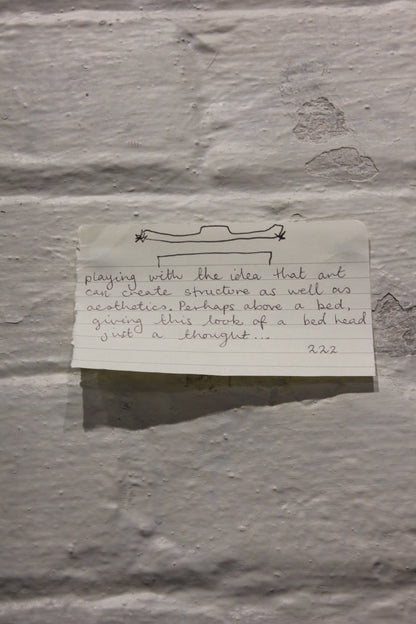 playing with the idea that art
can create structure as well as
aesthetics. Perhaps above a bed,
giving this look of a bed head
just a thought...
222